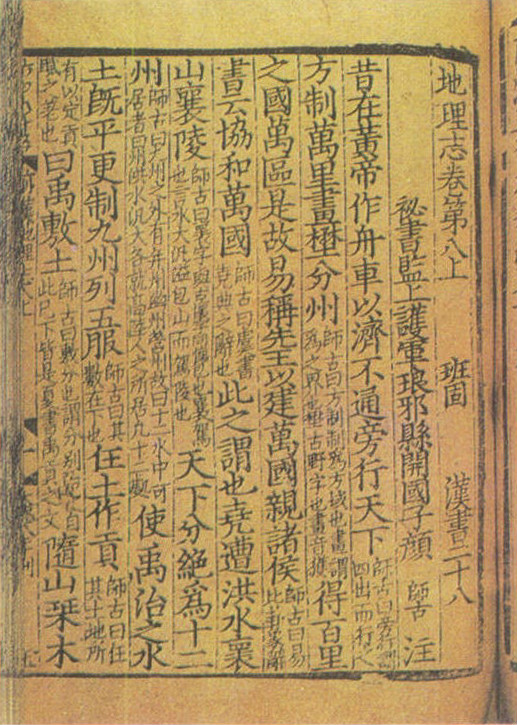 地理志卷第八上 班固 漢書二十八
祕書監上護軍琅邪縣開國子顏 師古 注
昔在黃帝作舟車以濟不通旁行天下 師古曰旁行謂四出而行之
方制萬里畫壄分州 師古曰方制制爲方域也畫謂爲之界也壄古野字也畫音獲 得百里
之國萬區是故易稱先王以建萬國親諸侯 師古曰易
書云協和萬國 師古曰虞書堯典之辭也 此之謂也堯遭洪水褱
山襄陵 師古曰褱字與古懷字同懷包也襄駕也言水大汎溢包山而駕陵也 天下分絕爲十二
州 師古曰九州之外有并州幽州營州故曰十二水中可居者曰州洪水汎大各就高陸人之所居凡十二處 使禹治之水
土旣平更制九州列五服 師古曰其數在下也 任土作貢 師古曰任其土地所
有以定貢賦之差也 曰禹敷土 師古曰敷分也謂分別治之自此已下皆是夏書禹貢之文 隨山栞木